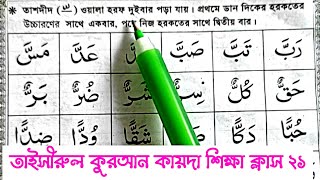 * তাশদীদ (ّ) ওয়ালা হরফ দুইবার পড়া যায়। প্রথমে ডান দিকের হরকতের
উচ্চারণের সাথে একবার, নিজ হরকতের সাথে দ্বিতীয় বার।
رَبَّ تَبَّ صَبَّ عَدَّ مَسَّ
حَقٌّ كُلٌّ شَرٌّ ضُرٌّ بَرٌّ
حُبًّا دَكًّا شَقًّا وُدًّا ضِدًّا
তাইসীরুল কুরআন কায়দা শিক্ষা ক্লাস ২১